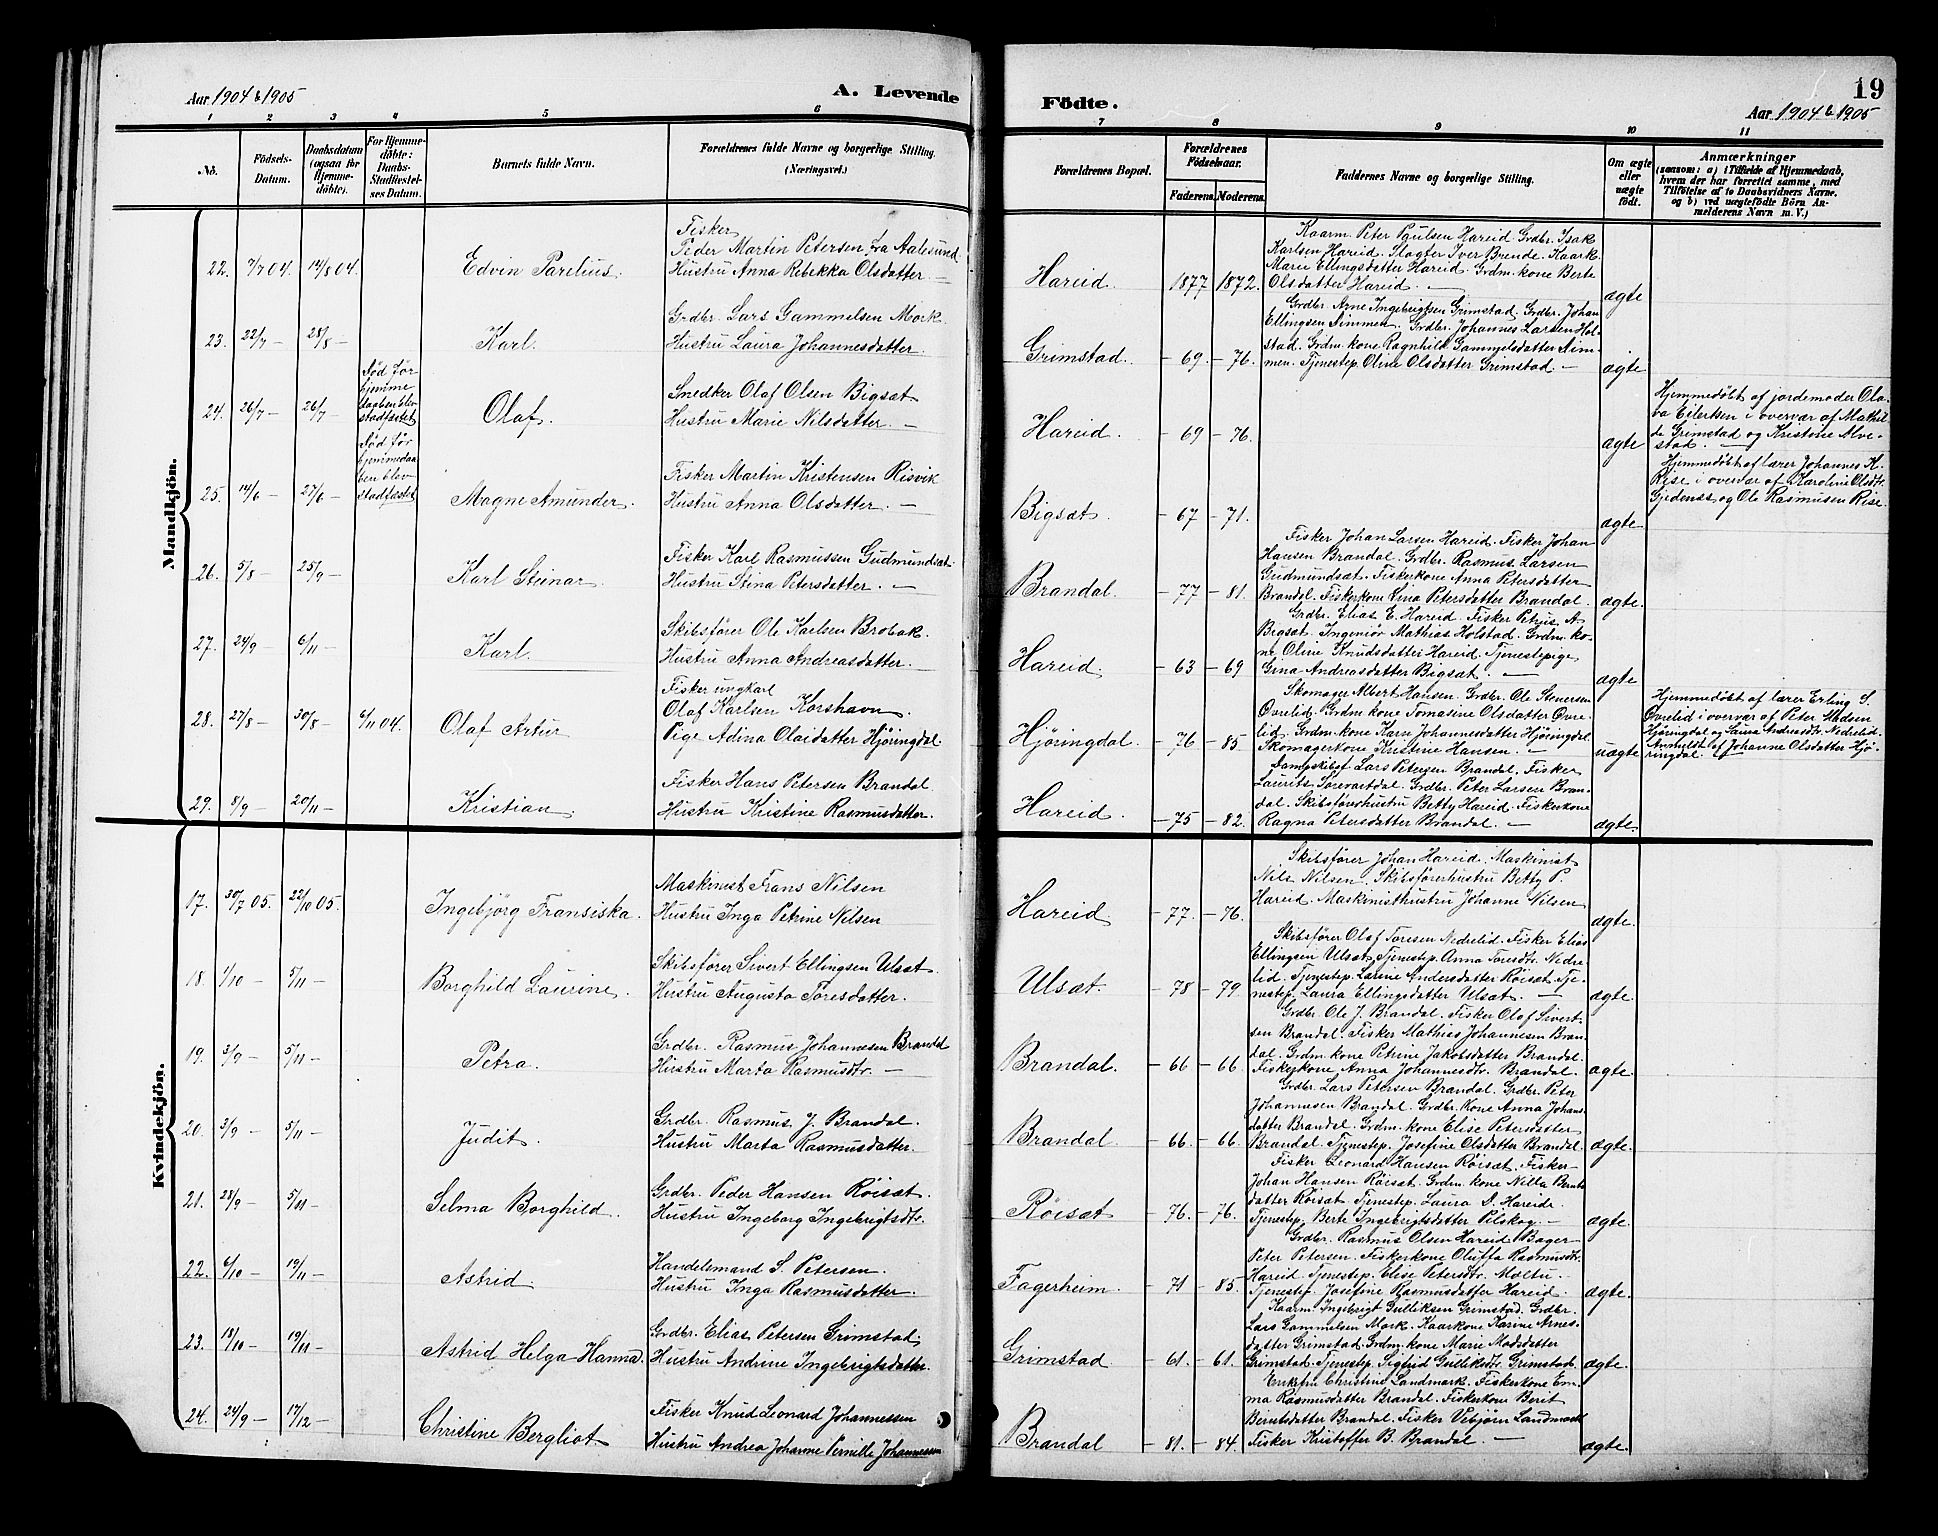 Aar 1904 & 1905
A. Levende
1 2 3 4 5 6
No.
Födsels-
Datum.
Daabsdatum
(ogsaa for
Hjemme-
döbte).
For Hjemme-
döbte:
Daabs-
Stadfæstel-
ses Datum.
Barnets fulde Navn.
Forældrenes fulde Navne og borgerlige Stilling.
(Næringsvei.)
Mandkjön.
22. 7/7 04. 14/8 04. Edvin Parelius.
Fisker
Peder Martin Petersen fra Aalesund
Hustru Anna Rebekka Olsdatter. —
23. 22/7 — 28/8 — Karl.
Grdbr. Lars Gammelsen Mork.
Hustru Laura Johannesdatter.
24. 26/7 — 26/7 —
Död för
hjemme
daaben blev
stadfæstet.
Olaf.
Snedker Olaf Olsen Bigsæt
Hustru Marie Nilsdatter. —
25. 14/6 — 27/6 —
Död för
hjemmedaa
ben blev
stadfæstet
Magne Amunder.
Fisker Martin Kristensen Risvik
Hustru Anna Olsdatter. —
26. 5/8 — 25/9 — Karl Steinar.
Fisker Karl Rasmussen Gudmundsæt.
Hustru Stina Petersdatter. —
27. 24/9 6/11 — Karl.
Skibsförer Ole Karlsen Brobak.
Hustru Anna Andreasdatter. —
28. 27/8 — 30/8 — 6/11 04. Olaf Artur
Fisker ungkarl
Olaf Karlsen Korshavn.
Pige Adina Olaidatter Hjöringdal.
29. 8/9 — 20/11 — Kristian
Fisker Hans Petersen Brandal
Hustru Kristine Rasmusdatter.
Kvindekjön.
17. 30/7 05. 22/10 05. Ingebjörg Fransiska.
Maskinist Frans Nilsen
Hustru Inga Petrine Nilsen
18. 1/10 — 5/11 — Borghild Laurine.
Skibsförer Sivert Ellingsen Ulsæt.
Hustru Augusta Toresdatter.
19. 3/9 — 5/11 — Petra.
Grdbr. Rasmus Johannesen Brandal
Hustru Marta Rasmusdtr. —
20. 3/9 — 5/11 — Judit.
Grdbr. Rasmus J. Brandal.
Hustru Marta Rasmusdatter.
21. 28/9 — 5/11 — Selma Borghild.
Grdbr. Peder Hansen Röisæt.
Hustru Ingeborg Ingebrigtsdtr.
22. 6/10 — 19/11 — Astrid.
Handelsmand S. Petersen.
Hustru Inga Rasmusdatter.
23. 18/10 — 19/11 — Astrid Helga Hanna.
Grdbr. Elias Petersen Grimstad.
Hustru Andrine Ingebrigtsdatter.
24. 24/9 — 17/12 — Christine Bergliot.
Fisker Knud Leonard Johannessen
Hustru Andrea Johanne Pernille Johannessen
Födte.
19
Aar 1904 & 1905
7 8 9 10 11
Forældrenes Bopæl.
Forældrenes
Födselsaar.
Faderens. Moderens.
Faddernes Navne og borgerlige Stilling.
Om ægte
eller
uægte
födt.
Anmærkninger
(saasom: a) i Tilfælde af Hjemmedaab,
hvem der har forrettet samme, med
Tilföielse af to Daabsvidners Navne.
og b) ved uægtefödte Börn An-
melderens Navn m. V.)
Hareid. 1877 1872.
Kaarm. Peter Paulsen Hareid. Grdbr. Isak
Karlsen Hareid. Slagter Iver Brende. Kaark.
Marie Ellingsdatter Hareid. Grdm. kone Berte
Olsdatter Hareid. —
ægte
Grimstad. — 69. — 76.
Grdbr. Arne Ingebrigtsen Grimstad. Grdbr. Johan
Ellingsen Nimmen. Grdbr. Johannes Larsen Hol-
stad. Grdm. kone Ragnhild Gammelsdatter Nim-
men. Tjenestep. Oline Olsdatter Grimstad. —
ægte
Hareid. — 69 — 76.
ægte
Hjemmedøbt af jordemoder Ola-
va Eilertsen i overvær af Mathil-
de Grimstad og Kristine Alve-
stad. —
Bigsæt. — 67 — 71.
ægte
Hjemmedøbt af lærer Johannes K.
Rise i overvær af Karoline Olsdtr
Gjedenes og Ole Rasmusen Rise
Brandal. — 77 — 81.
Fisker Johan Larsen Hareid. Fisker Johan
Hansen Brandal. Grdbr. Rasmus Larsen
Gudmundsæt. Fiskerkone Anna Petersdatter
Brandal. Fiskerkone Lina Petersdatter Brandal.
ægte.
Hareid. — 63 — 69
Grdbr. Elias E. Hareid. Fisker Petrus A
Bigsæt. Ingeniör Mathias Holstad. Grdm. ko-
ne Oline Knudsdatter Hareid. Tjenestepige
Gina Andreasdatter Bigsæt. —
ægte
Hjöringdal. — 76 — 85
Skomager Albert Hansen. Grdbr. Ole Steversen
Øvrelid. Grdm. kone Tomasine Olsdatter Øvre-
lid. Grdm. kone Karn Johannesdatter Hjöringdal
Skomagerkone Kristine Hansen. —
uægte
Hjemmedøbt af lærer Erling S.
Øvrelid i overvær af Peter Madsen
Hjöringdal og Laura Andreasdtr Nedrelid.
Anmeldt af Johanne Olsdatter Hjø-
ringdal —
Hareid. — 75 — 82.
Dampskibsf. Lars Petersen Brandal. Fisker
Laurits Torevartdal. Grdbr. Peter Larsen Bran-
dal. Skibsförerhustru Betty Hareid. Fiskerkone
Ragna Petersdatter Brandal. —
ægte.
Hareid — 77. — 76.
Skibsförer Johan Hareid. Maskinist
Nils Nilsen. Skibsförerhustru Betty P.
Hareid. Maskinisthustru Johanne Nilsen
ægte.
Ulsæt. — 78 — 79
Skibsförer Olaf Toresen Nedrelid. Fisker Elias
Ellingsen Ulsæt. Tjenestep. Anna Toresdtr. Nedre-
lid. Tjenestep. Larine Andersdatter Röisæt. Tje-
nestep. Laura Ellingsdatter Ulsæt. —
ægte.
Brandal. — 66 — 66
Grdbr. Ole J. Brandal. Fisker Olaf Sivert-
sen Brandal. Fisker Mathias Johannesen Bran-
dal. Grdm. kone Petrine Jakobsdatter Brandal.
Fiskerkone Anna Johannesdtr. Brandal.
ægte.
Brandal — 66. — 66.
Grdbr. Lars Petersen Brandal. Grdbr. Peter
Johannesen Brandal. Grdbr. kone Anna Johans
datter Brandal. Grdm. kone Elise Petersdatter
Brandal. Tjenestep. Josefine Olsdatter Brandal
ægte.
Röisæt — 76. — 76.
Fisker Leonard Hansen Röisæt. Fisker
Johan Hansen Röisæt. Grdm. kone Nilla Bernt
datter Röisæt. Tjenestep. Laura D. Hareide
Tjenestep. Berte Ingebrigtsdatter Pilskog. —
ægte.
Fagerheim — 71 — 85.
Grdbr. Rasmus Olsen Hareid. Bager
Peter Petersen. Fiskerkone Oluffa Rasmusdtr.
Hareid. Tjenestep. Elise Petersdtr. Moltu. —
Tjenestep. Josefine Rasmusdatter Hareid.
ægte.
Grimstad — 61. — 61.
Kaarm. Ingebrigt Gulliksen Grimstad. Grdbr.
Lars Gammelsen Mork. Kaarkone Karine Arnes-
datter Grimstad. Grdm. kone Marie Madsdatter
Grimstad. Tjenestep. Sigfrid Gulliksdtr. Grimstad.
ægte.
Brandal — 81. — 84.
Enkefru Christine Landmark. Fiskerkone Em-
ma Rasmusdatter Brandal. Fiskerkone Berit
Berntsdatter Brandal. Fisker Vebjörn Landmark
Fisker Kristoffer B. Brandal. —
ægte.